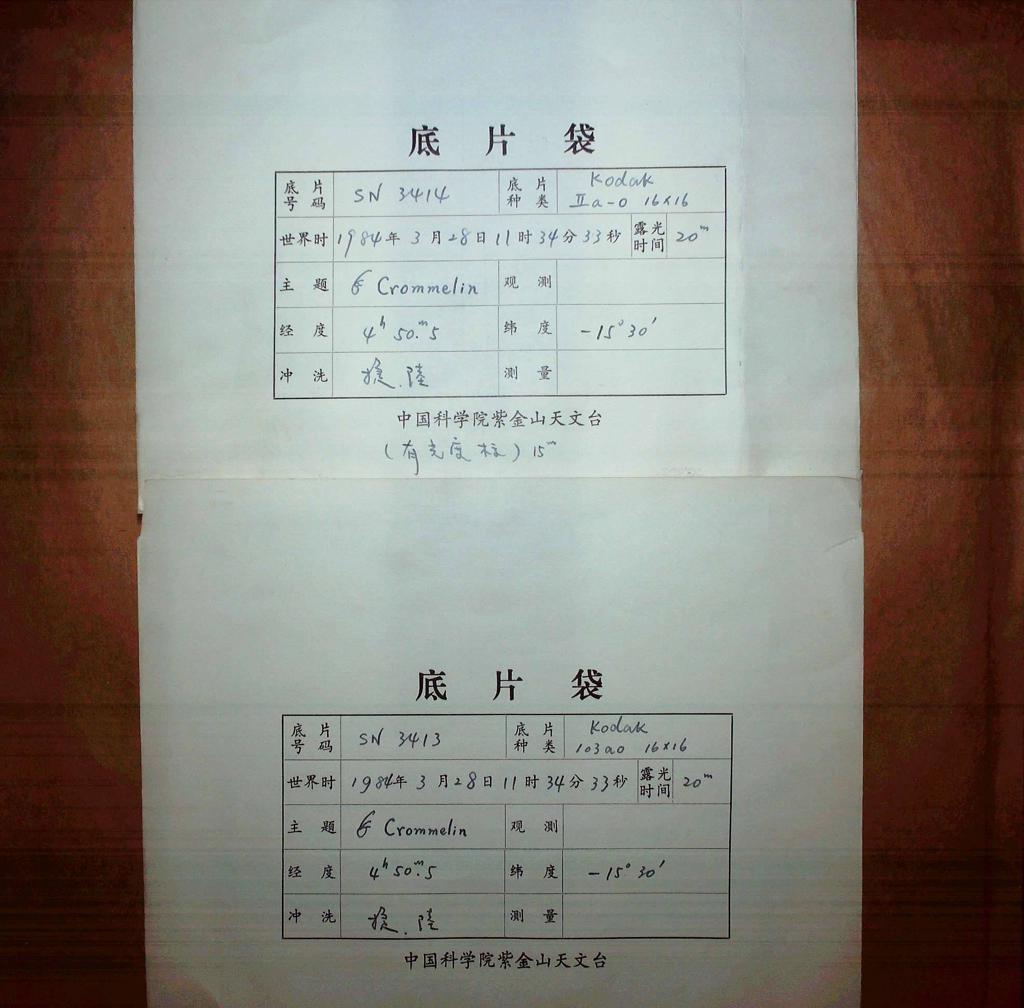 底片袋
底片号码 SN 3414 底片种类 Kodak IIa-0 16×16
世界时 1984年 3月28日 11时34分33秒 露光时间 20ᵐ
主题 Crommelin 观测
经度 4ʰ 50.ᵐ5 纬度 -15°30′
冲洗 陸 测量
中国科学院紫金山天文台
(有光度标) 15ᵐ
底片袋
底片号码 SN 3413 底片种类 Kodak 103a0 16×16
世界时 1984年 3月28日 11时34分33秒 露光时间 20ᵐ
主题 Crommelin 观测
经度 4ʰ 50.ᵐ5 纬度 -15°30′
冲洗 陸 测量
中国科学院紫金山天文台